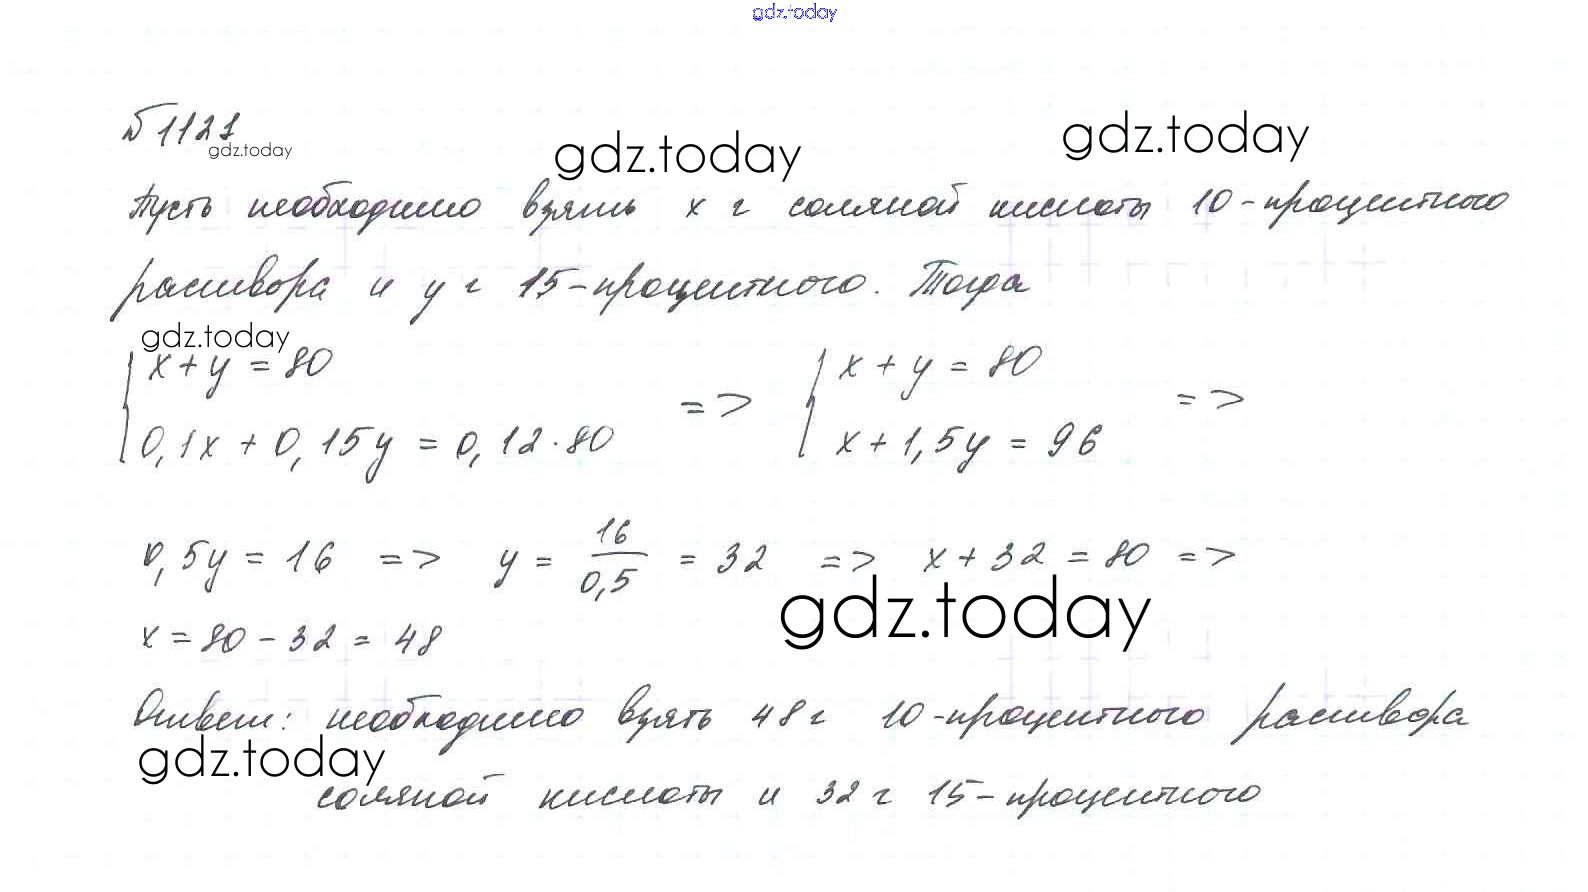 gdz.today
№ 1121
gdz.today
gdz.today
gdz.today
Пусть необходимо взять x г соляной кислоты 10-процентного
раствора и y г 15-процентного. Тогда
gdz.today
{ x + y = 80
0,1x + 0,15y = 0,12·80
=>
{ x + y = 80
x + 1,5y = 96
=>
0,5y = 16 => y = 16/0,5 = 32 => x + 32 = 80 =>
gdz.today
x = 80 - 32 = 48
Ответ: необходимо взять 48 г 10-процентного раствора
gdz.today
соляной кислоты и 32 г 15-процентного